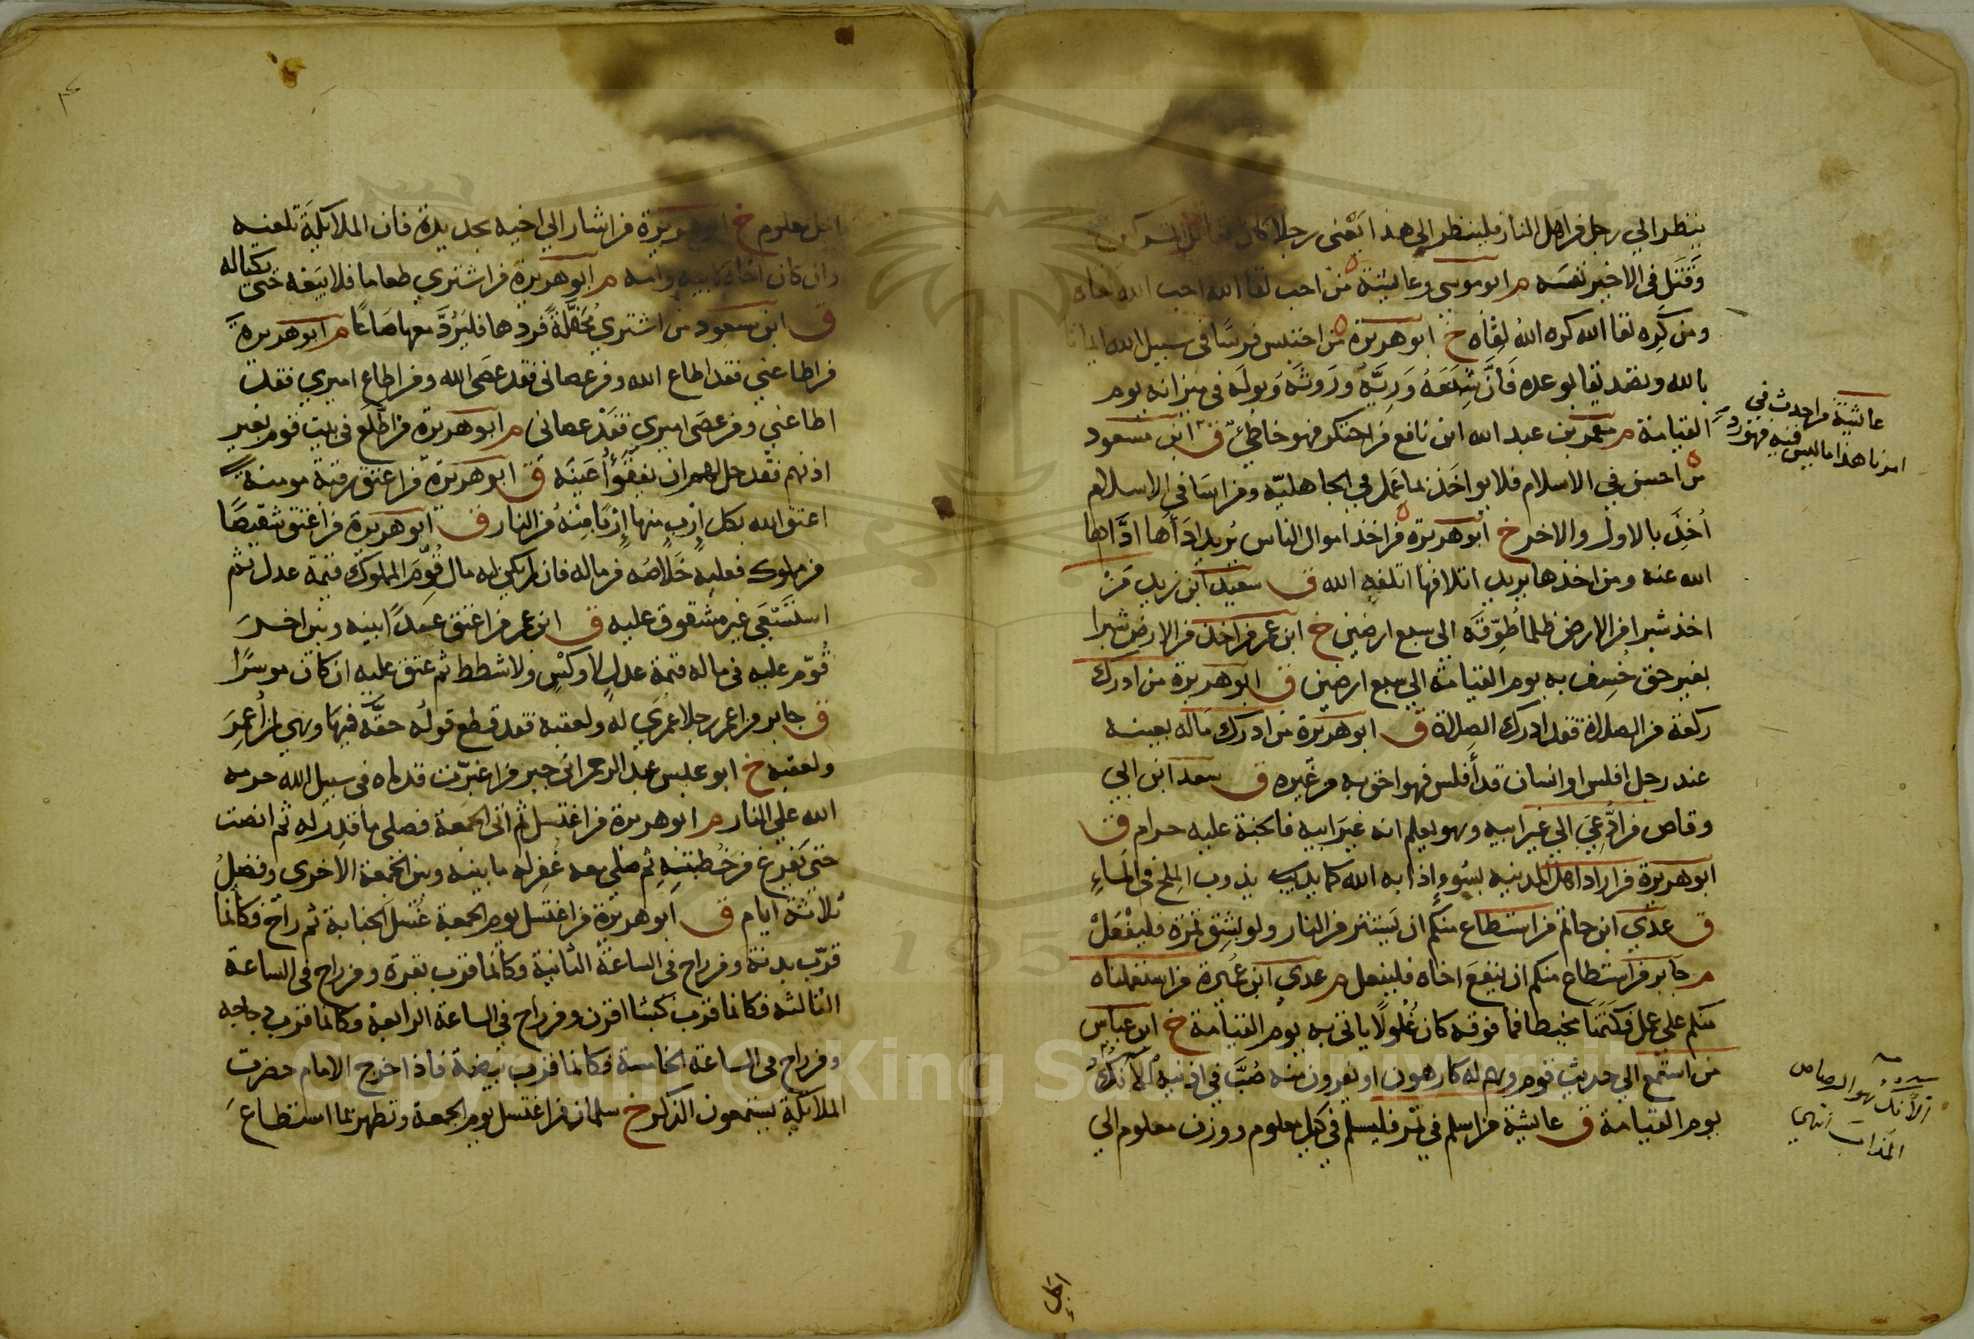 ينظر الي رجل من اهل النار فلينظر الي هذا يعني رجلا كان
وقتل في الاخير نفسه م ابو موسي وعايشة من احب لقا الله احب الله لقاه
ومن كره لقا الله كره الله لقاه خ ابو هريرة من احتبس فرسا في سبيل الله ايمانا
بالله وتصديقا بوعده فان شبعه وريه وروثه وبوله في ميزانه يوم
القيامة م معمر بن عبد الله ابن نافع من احتكر فهو خاطئ ق ابن مسعود
من احسن في الاسلام فلا يواخذ بما عمل في الجاهلية ومن اسا في الاسلام
اخذ بالاول والاخر خ ابو هريرة من اخذ اموال الناس يريد اداها اداها
الله عنه ومن اخذها يريد اتلافها اتلفه الله ق سعيد ابن زيد من
اخذ شبرا من الارض ظلما طوقه الي سبع ارضين خ ابن عمر من اخذ من الارض شبرا
بغير حق خسف به يوم القيامة الي سبع ارضين ق ابو هريرة من ادرك
ركعة من الصلاة فقد ادرك الصلاة ق ابو هريرة من ادرك ماله بعينه
عند رجل افلس او انسان قد أفلس فهو احق به من غيره ق سعد ابن ابي
وقاص من ادعي الي غير ابيه وهو يعلم انه غير ابيه فالجنة عليه حرام ق
ابو هريرة من اراد اهل المدينه بسوء اذابه الله كما يذوب الملح في الماء
ق عدي ابن حاتم من استطاع منكم ان يستتر من النار ولو بشق تمرة فليفعل
م جابر من استطاع منكم ان ينفع اخاه فليفعل م عدي ابن عميرة من استعملناه
منكم علي عمل فكتمنا مخيطا فما فوقه كان غلولا ياتي به يوم القيامة خ ابن عباس
من استمع الي حديث قوم وهم له كارهون او يفرون منه صب في اذنيه الآنك
يوم القيامة ق عايشة من اسلم في تمر فليسلم في كيل معلوم ووزن معلوم الي
عايشة من احدث في
امرنا هذا ما ليس فيه فهو رد
الآنك هو الرصاص
المذاب انتهي
اجل
اجل معلوم خ ابو هريرة من اشار الي اخيه بحديدة فان الملايكة تلعنه
وان كان اخاه لابيه وامه م ابو هريرة من اشتري طعاما فلا يبعه حتي يكتاله
ق ابن مسعود من اشتري محفلة فردها فليرد معها صاعا م ابو هريرة
من اطاعني فقد اطاع الله ومن عصاني فقد عصي الله ومن اطاع اميري فقد
اطاعني ومن عصي اميري فقد عصاني م ابو هريرة من اطلع في بيت قوم بغير
اذنهم فقد حل لهم ان يفقؤا عينه ق ابو هريرة من اعتق رقبة مومنة
اعتق الله بكل إرب منها إربا منه من النار ق ابو هريرة من اعتق شقيصا
من مملوك فعليه خلاصه من ماله فان لم يكن له مال قوم المملوك قيمة عدل ثم
استسعي غير مشقوق عليه ق ابن عمر من اعتق عبدا بينه وبين اخر
قوم عليه في ماله قيمة عدل لا وكس ولا شطط ثم عتق عليه ان كان موسرا
ق جابر من اعمر رجلا عمري له ولعقبه فقد قطع قوله حقه فيها وهي لمن أعمر
ولعقبه خ ابو عبس عبد الرحمن ابن جبر من اغبرت قدماه في سبيل الله حرمه
الله علي النار م ابو هريرة من اغتسل ثم اتي الجمعة فصلي ما قدر له ثم انصت
حتي يفرغ من خطبته ثم صلي معه غفر له ما بينه وبين الجمعة الاخري وفضل
ثلاثة ايام ق ابو هريرة من اغتسل يوم الجمعة غسل الجنابة ثم راح فكانما
قرب بدنة ومن راح في الساعة الثانية فكانما قرب بقرة ومن راح في الساعة
الثالثه فكانما قرب كبشا اقرن ومن راح في الساعة الرابعة فكانما قرب دجاجه
ومن راح في الساعة الخامسة فكانما قرب بيضة فاذا خرج الامام حضرت
الملايكة يستمعون الذكر خ سلمان من اغتسل يوم الجمعة وتطهر بما استطاع
Copyright © King Saud University
195